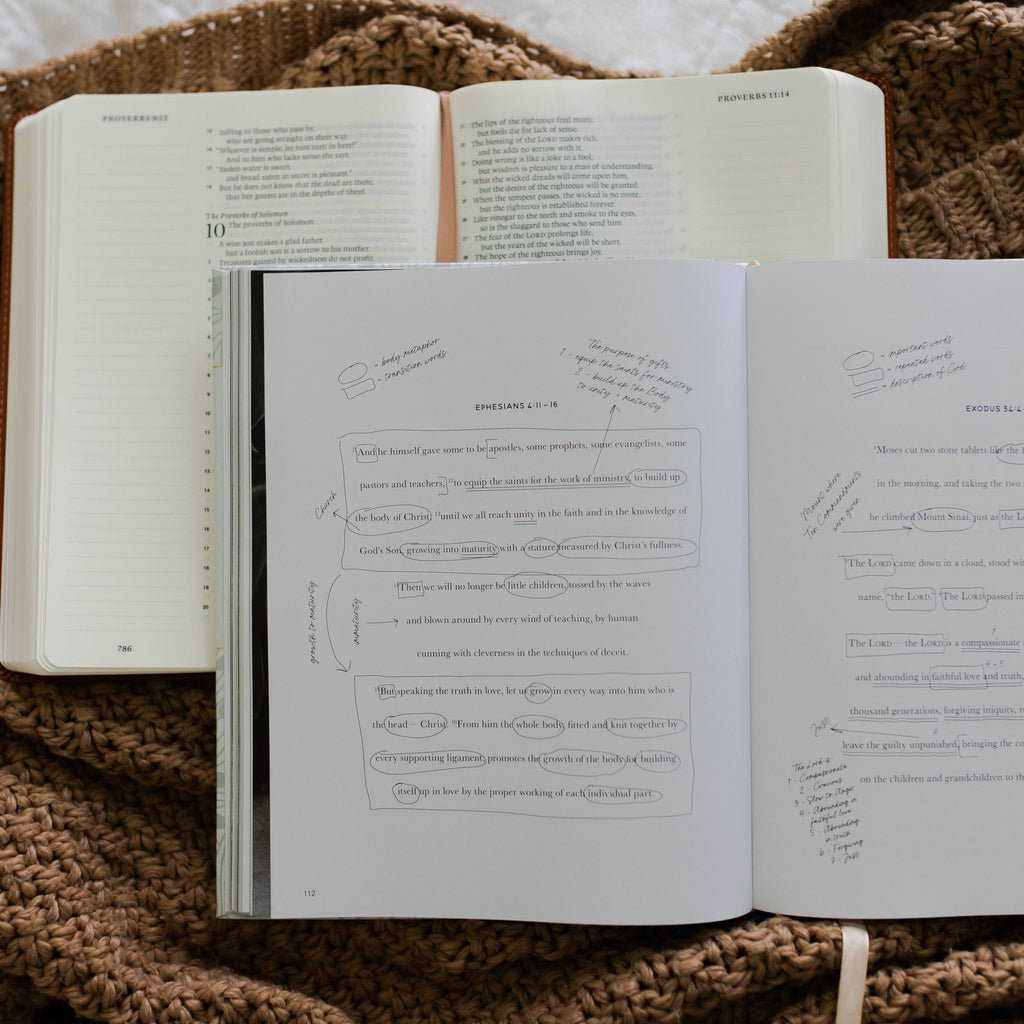 PROVERBS 9:15
15 calling to those who pass by,
who are going straight on their way,
16 "Whoever is simple, let him turn in here!"
And to him who lacks sense she says,
17 "Stolen water is sweet,
and bread eaten in secret is pleasant."
18 But he does not know that the dead are there,
that her guests are in the depths of Sheol.
The Proverbs of Solomon
10 The proverbs of Solomon.
A wise son makes a glad father,
but a foolish son is a sorrow to his mother.
2 Treasures gained by wickedness do not profit,
786
PROVERBS 11:14
21 The lips of the righteous feed many,
but fools die for lack of sense.
22 The blessing of the LORD makes rich,
and he adds no sorrow with it.
23 Doing wrong is like a joke to a fool,
but wisdom is pleasure to a man of understanding.
24 What the wicked dreads will come upon him,
but the desire of the righteous will be granted.
25 When the tempest passes, the wicked is no more,
but the righteous is established forever.
26 Like vinegar to the teeth and smoke to the eyes,
so is the sluggard to those who send him.
27 The fear of the LORD prolongs life,
but the years of the wicked will be short.
28 The hope of the righteous brings joy,
- body metaphor
- transition words
The purpose of gifts
1 - equip the saints for ministry
2 - build up the Body
to unity + maturity
EPHESIANS 4:11–16
11 And he himself gave some to be apostles, some prophets, some evangelists, some
pastors and teachers, 12 to equip the saints for the work of ministry, to build up
the body of Christ, 13 until we all reach unity in the faith and in the knowledge of
God's Son, growing into maturity with a stature measured by Christ's fullness.
14 Then we will no longer be little children, tossed by the waves
and blown around by every wind of teaching, by human
cunning with cleverness in the techniques of deceit.
15 But speaking the truth in love, let us grow in every way into him who is
the head—Christ. 16 From him the whole body, fitted and knit together by
every supporting ligament, promotes the growth of the body for building
itself up in love by the proper working of each individual part.
Church
growth to maturity
immaturity
112
- important words
- repeated words
- description of God
EXODUS 34:4
4 Moses cut two stone tablets like the f
in the morning, and taking the two
he climbed Mount Sinai, just as the L
5 The LORD came down in a cloud, stood wi
name, "the LORD." 6 The LORD passed in
The LORD—the LORD is a compassionate
and abounding in faithful love and truth,
thousand generations, forgiving iniquity, r
leave the guilty unpunished, bringing the co
on the children and grandchildren to th
Mount where
Ten Commandments
were given
1
4 + 5
7
Just
The Lord is
1 - Compassionate
2 - Gracious
3 - Slow to Anger
4 - Abounding in
faithful love
5 - Abounding
in truth
6 - Forgiving
7 - Just